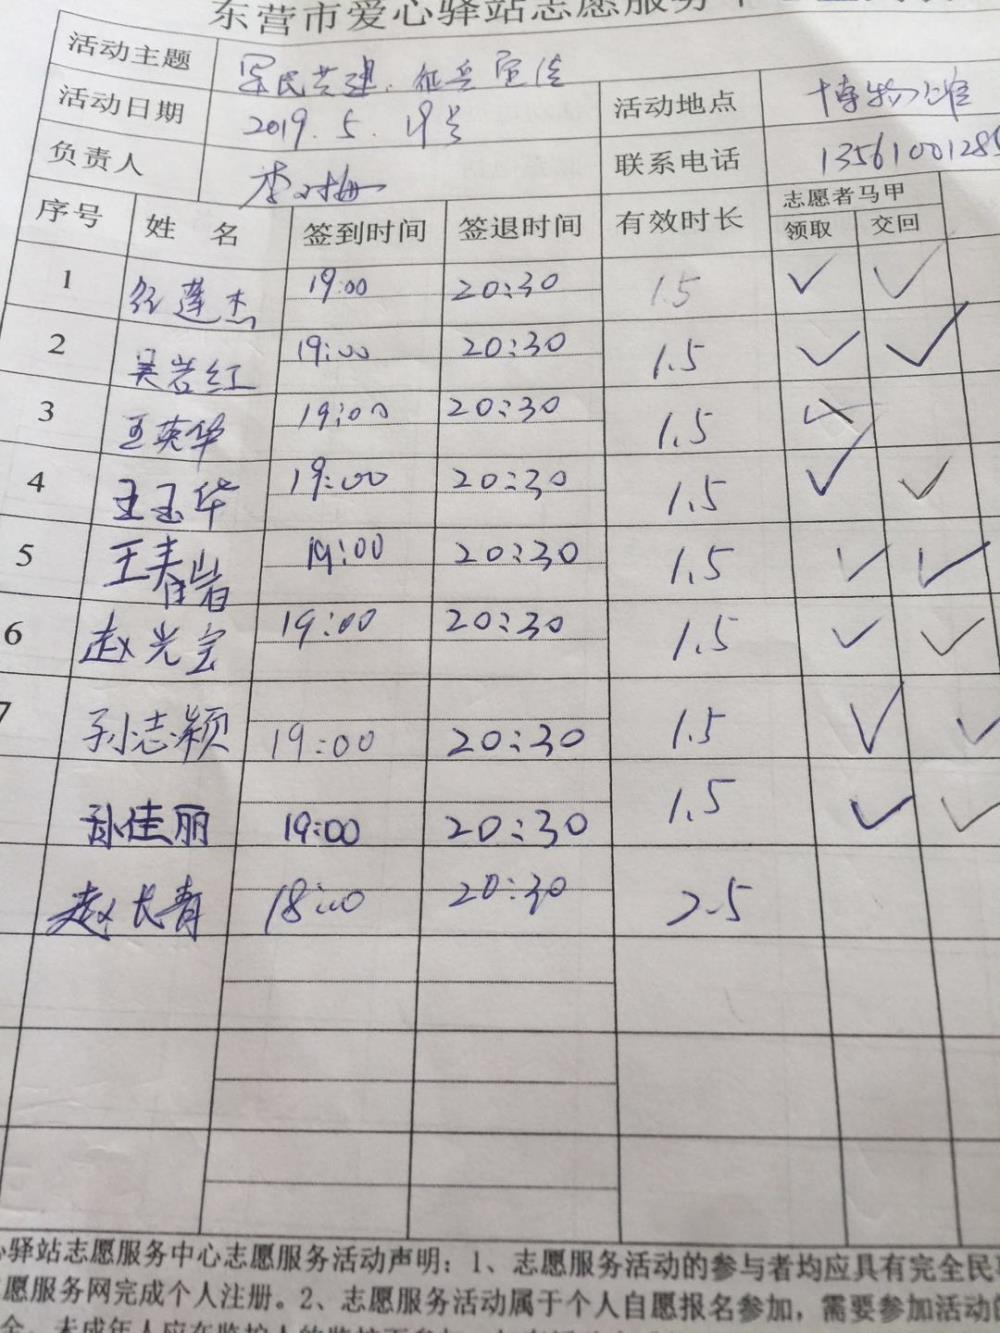 东营市爱心驿站志愿服务中心
活动主题 军民共建.征兵宣传
活动日期 2019.5.19号 活动地点 博物馆
负责人 联系电话 1356100128
序号 姓 名 签到时间 签退时间 有效时长 志愿者马甲
领取 交回
1 19:00 20:30 1.5 ✓ ✓
2 吴岩红 19:00 20:30 1.5 ✓ ✓
3 王英华 19:00 20:30 1.5
4 王玉华 19:00 20:30 1.5 ✓ ✓
5 王春岩 19:00 20:30 1.5 ✓ ✓
6 赵光宝 19:00 20:30 1.5 ✓ ✓
7 孙志颖 19:00 20:30 1.5 ✓ ✓
孙佳丽 19:00 20:30 1.5 ✓ ✓
赵长青 18:00 20:30 2.5
心驿站志愿服务中心志愿服务活动声明：1、志愿服务活动的参与者均应具有完全民事
愿服务网完成个人注册。2、志愿服务活动属于个人自愿报名参加，需要参加活动的